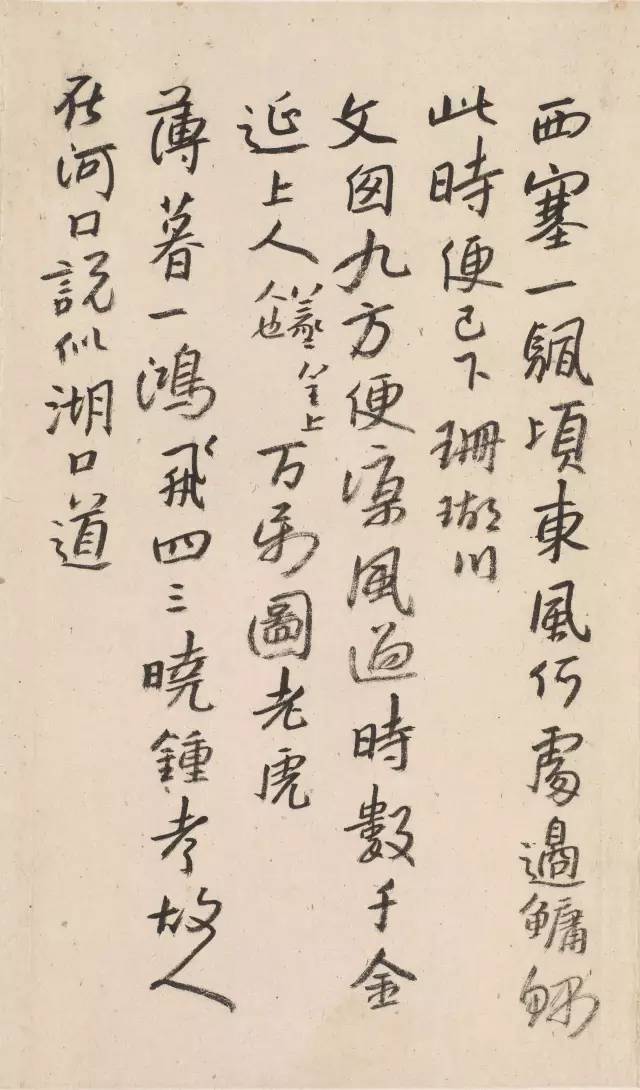 西塞一颿頃東風何處過鱅鰥
此時便已下珊瑚川
文囪九方便涼風過時數千金
延上人
人也
上
万圖老虎
薄暮一鴻飛四三曉鍾孝故人
在河口說似湖口道